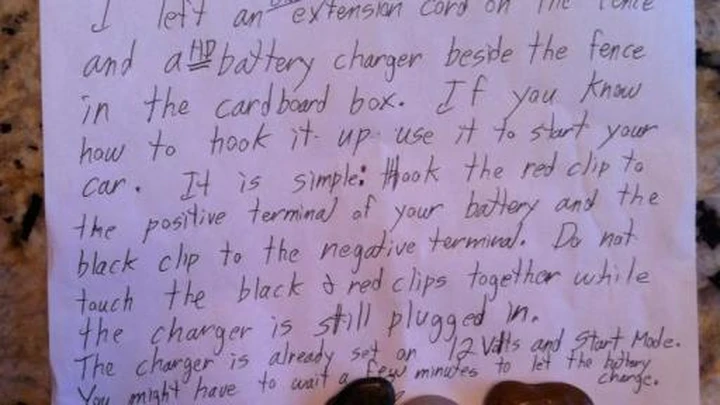 I left an extension cord on the fence
and a HD battery charger beside the fence
in the cardboard box. If you know
how to hook it up use it to start your
car. It is simple: Hook the red clip to
the positive terminal of your battery and the
black clip to the negative terminal. Do not
touch the black & red clips together while
the charger is still plugged in.
The charger is already set on 12 Volts and Start Mode.
You might have to wait a few minutes to let the battery
charge.